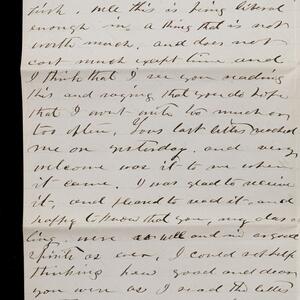 sick. Well this is being liberal
enough in a thing that is not
worth much, and does not
cost much except time and
I think that I see you reading
this and saying that you do hope
that I wont write too much or
too often. Your last letter reached
me on yesterday. and very
welcome was it to me when
it came. I was glad to receive
it, and pleased to read it, and
happy to know that you, my dar
ling were so well and in as good
spirits as ever, I could not help
thinking how good and dear
you were as I read the letter